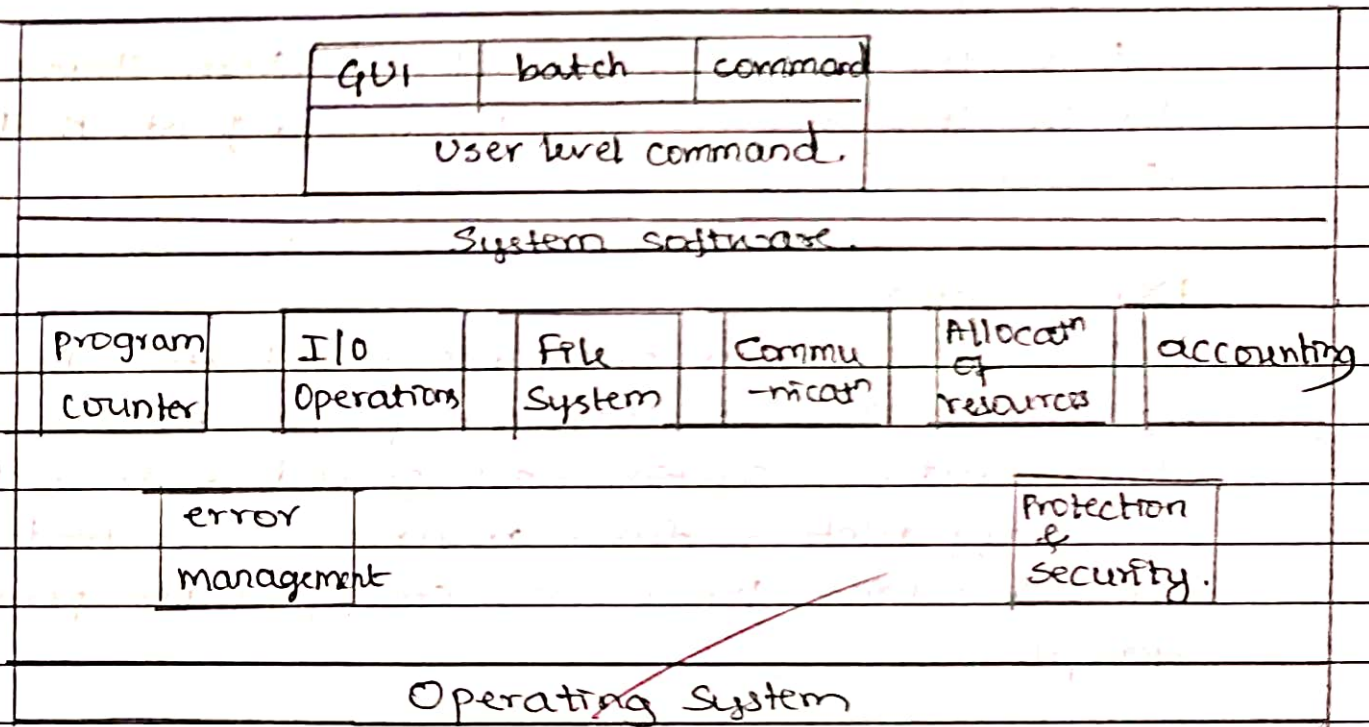 GUI batch command
User level command.
System software.
program counter
I/O Operations
File System
Commu -nicatn
Allocatn of resources
accounting
error management
Protection & security.
Operating System